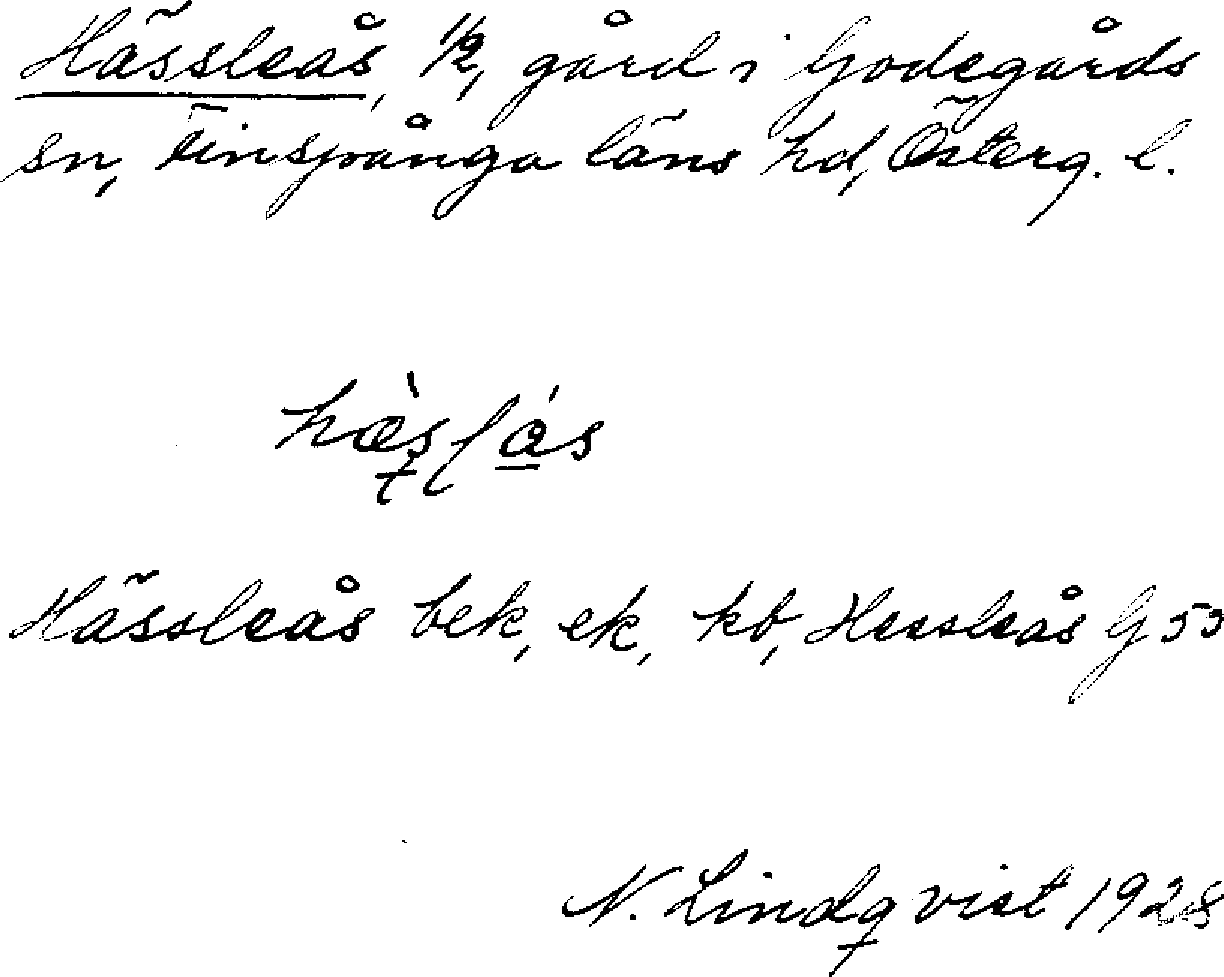 Hässleås, 1/2, gård i Godegårds
sn, Finspånga läns hd, Österg. l.
hæ̀slås
Hässleås bek, ek, kb, Hessleås G 53
N. Lindqvist 1928